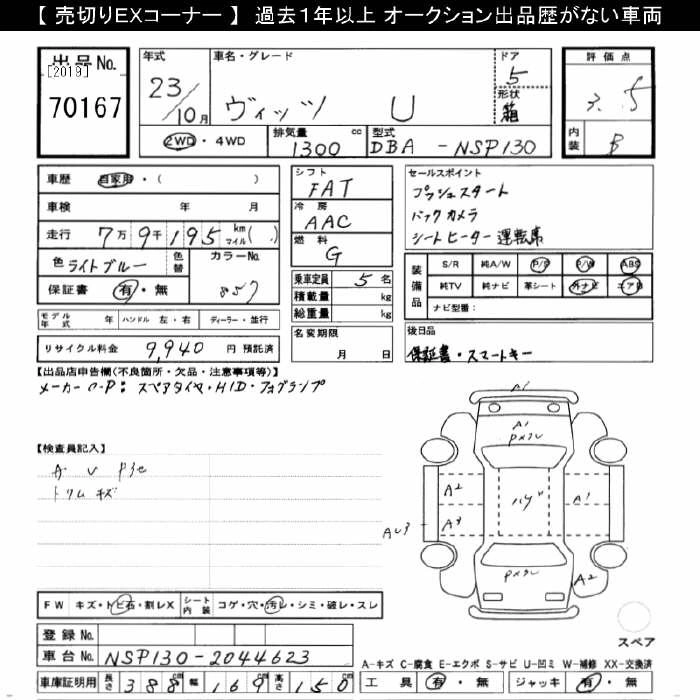 【 売切りEXコーナー 】 過去1年以上 オークション出品歴がない車両
出品No.
[2019]
70167
年式
23
/10月
車名・グレード
ヴィッツ U
ドア
5
形状
箱
評価点
3.5
内装
B
2WD・4WD
排気量
1300 cc
型式
DBA - NSP130
車歴 自家用・( )
車検 年 月
走行 7万9千195 km マイル( )
色 ライトブルー
色替
カラーNo.
857
保証書 有・無
シフト
FAT
冷房
AAC
燃料
G
乗車定員 5 名
積載量 kg
総重量 kg
名変期限
月 日
セールスポイント
プッシュスタート
バックカメラ
シートヒーター 運転席
装備品
S/R 純A/W P/S P/W ABS
純TV 純ナビ 革シート 外ナビ エアB
ナビ型番：
モデル年式 年 ハンドル 左・右 ディーラー・並行
リサイクル料金 9,940 円 預託済
後日品
保証書・スマートキー
【出品店申告欄(不良箇所・欠品・注意事項等)】
メーカーOP: スペアタイヤ・HID・フォグランプ
【検査員記入】
A U P多
トリム キズ
A1
A1
Pメクレ
A2
ハゲ
A1
AU3
A3
Pメクレ
A2
スペア
FW キズ・トビ石・割レX
シート内装 コゲ・穴・汚レ・シミ・破レ・スレ
登録No.
車台No. NSP130-2044623
車庫証明用 長さ 388 cm 幅 169 cm 高さ 150 cm
A-キズ C-腐食 E-エクボ S-サビ U-凹ミ W-補修 XX-交換済
工具 有・無 ジャッキ 有・無